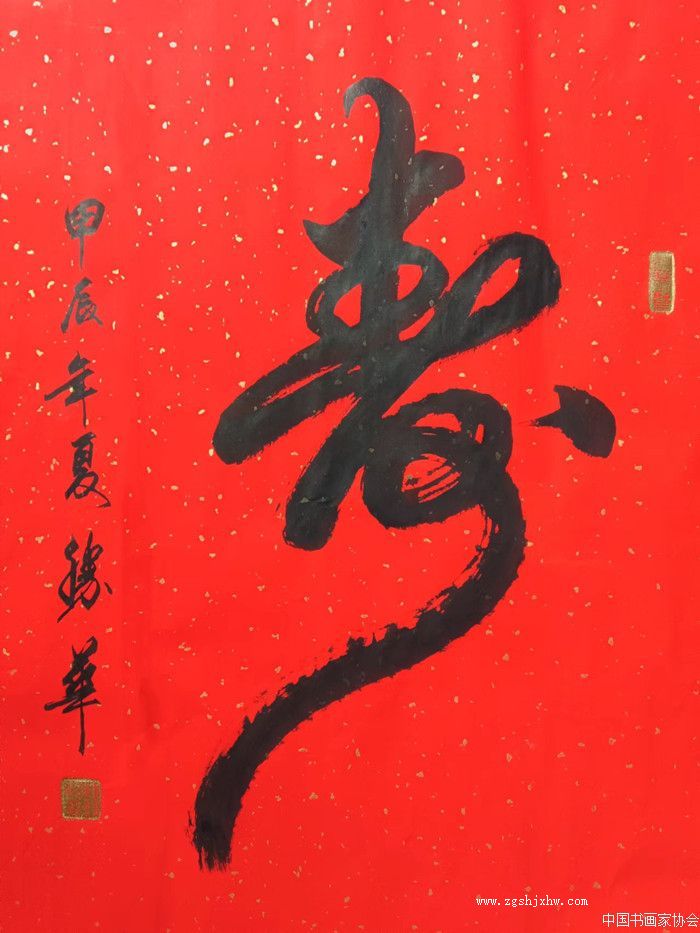 寿
甲辰年夏 勝華
www.zgshjxhw.com
中国书画家协会